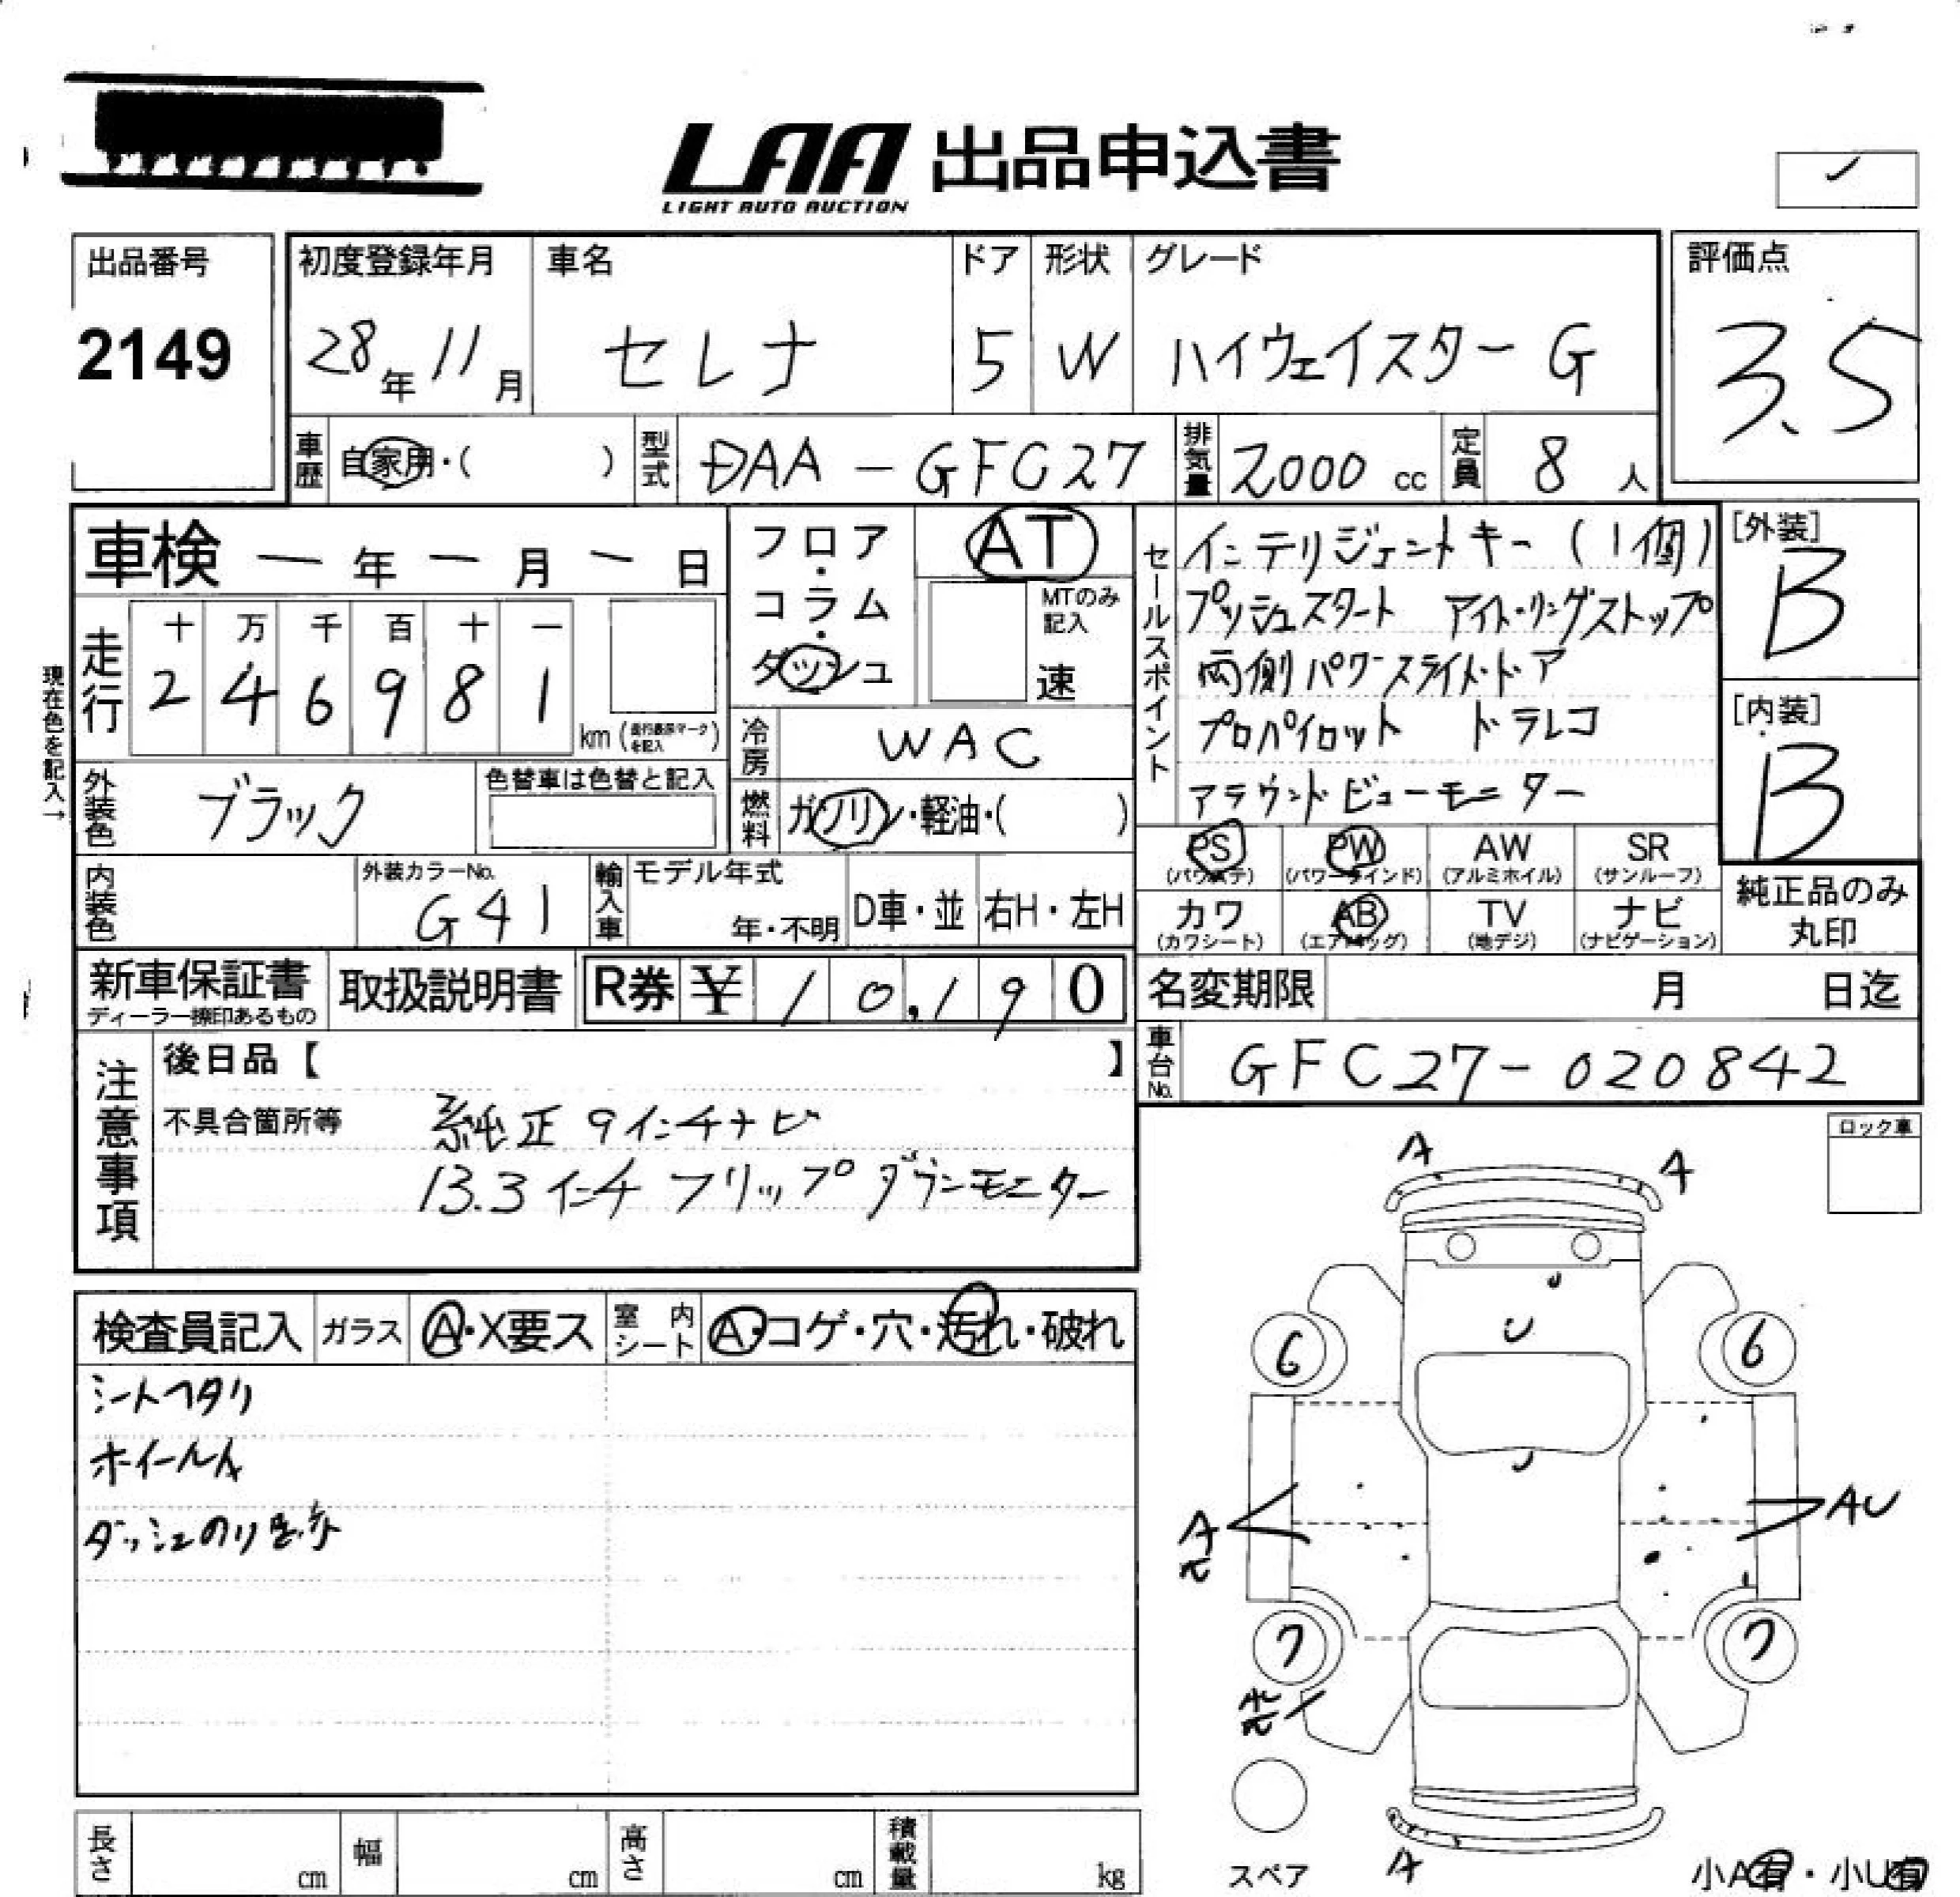 LAA 出品申込書
LIGHT AUTO AUCTION
出品番号
2149
初度登録年月
28年11月
車名
セレナ
ドア
5
形状
W
グレード
ハイウェイスター G
評価点
3.5
車歴
自家用・( )
型式
DAA-GFC27
排気量
2000 cc
定員
8 人
車検 ー年ー月ー日
現在色を記入→
走行
十 万 千 百 十 一
2 4 6 9 8 1
km (走行表示マークを記入)
フロア・コラム・ダッシュ
AT
MTのみ記入
速
冷房
WAC
燃料
ガソリン・軽油・( )
外装色
ブラック
色替車は色替と記入
内装色
外装カラーNo.
G41
輸入車
モデル年式
年・不明
D車・並
右H・左H
セールスポイント
インテリジェントキー (1個)
プッシュスタート アイドリングストップ
両側パワースライドドア
プロパイロット ドラレコ
アラウンドビューモニター
[外装]
B
[内装]
B
PS (パワステ)
PW (パワーウインド)
AW (アルミホイル)
SR (サンルーフ)
カワ (カワシート)
AB (エアバッグ)
TV (地デジ)
ナビ (ナビゲーション)
純正品のみ丸印
新車保証書
ディーラー捺印あるもの
取扱説明書
R券 ¥ 10,190
名変期限 月 日迄
車台No.
GFC27-020842
注意事項
後日品【 】
不具合箇所等
純正9インチナビ
13.3インチフリップダウンモニター
ロック車
検査員記入
ガラス
A・X要ス
室内シート
A・コゲ・穴・汚れ・破れ
シートヘタリ
ホイールA
ダッシュのり跡
A A
U
6 6
U
A AU
7 7
スペア
A
小A有・小U有
長さ cm
幅 cm
高さ cm
積載量 kg